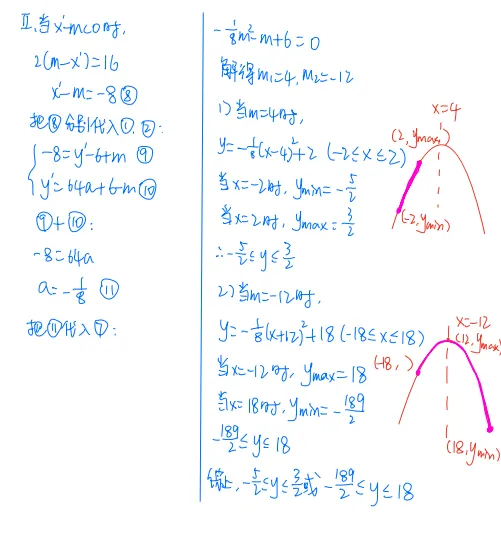 Ⅱ.当x'-m<0时,
2(m-x')=16
x'-m=-8⑧
把⑧分别代入①,②:
-8=y'-6+m ⑨
y'=64a+6-m⑩
⑨+⑩:
-8=64a
a=-1/8 ⑪
把⑪代入⑦:
-1/8m²-m+6=0
解得m₁=4, m₂=-12
1)当m=4时,
y=-1/8(x-4)²+2 (-2≤x≤2)
当x=-2时, ymin=-5/2
当x=2时, ymax=3/2
∴-5/2≤y≤3/2
2)当m=-12时,
y=-1/8(x+12)²+18 (-18≤x≤18)
当x=-12时, ymax=18
当x=18时, ymin=-189/2
-189/2≤y≤18
综上,-5/2≤y≤3/2或-189/2≤y≤18
x=4
(2,ymax)
(-2,ymin)
x=-12
(12,ymax)
(-18, )
(18,ymin)